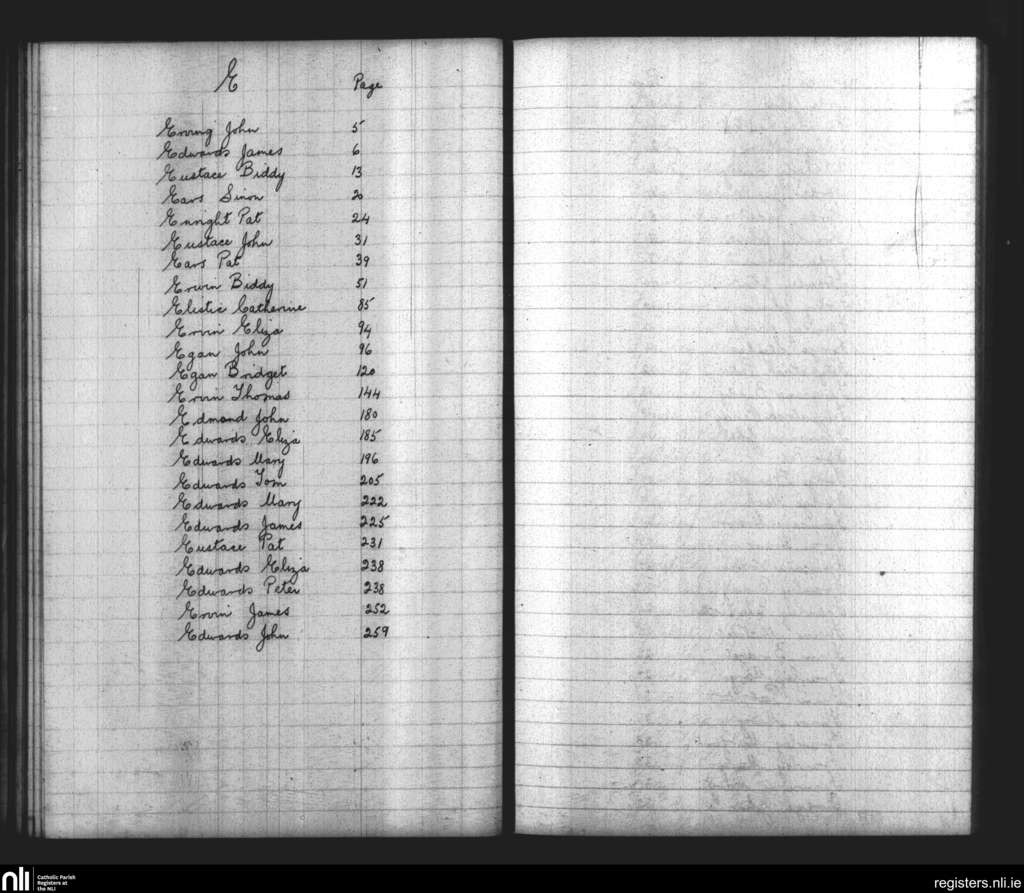 E Page
Erving John 5
Edwards James 6
Eustace Biddy 13
Ears Simon 20
Enright Pat 24
Eustace John 31
Ears Pat 39
Erwin Biddy 51
Elistic Catherine 85
Ervin Eliza 94
Egan John 96
Egan Bridget 120
Ervin Thomas 144
Edmond John 180
Edwards Eliza 185
Edwards Mary 196
Edwards Tom 205
Edwards Mary 222
Edwards James 225
Eustace Pat 231
Edwards Eliza 238
Edwards Peter 238
Ervin James 252
Edwards John 259
nli Catholic Parish
Registers at
the NLI
registers.nli.ie